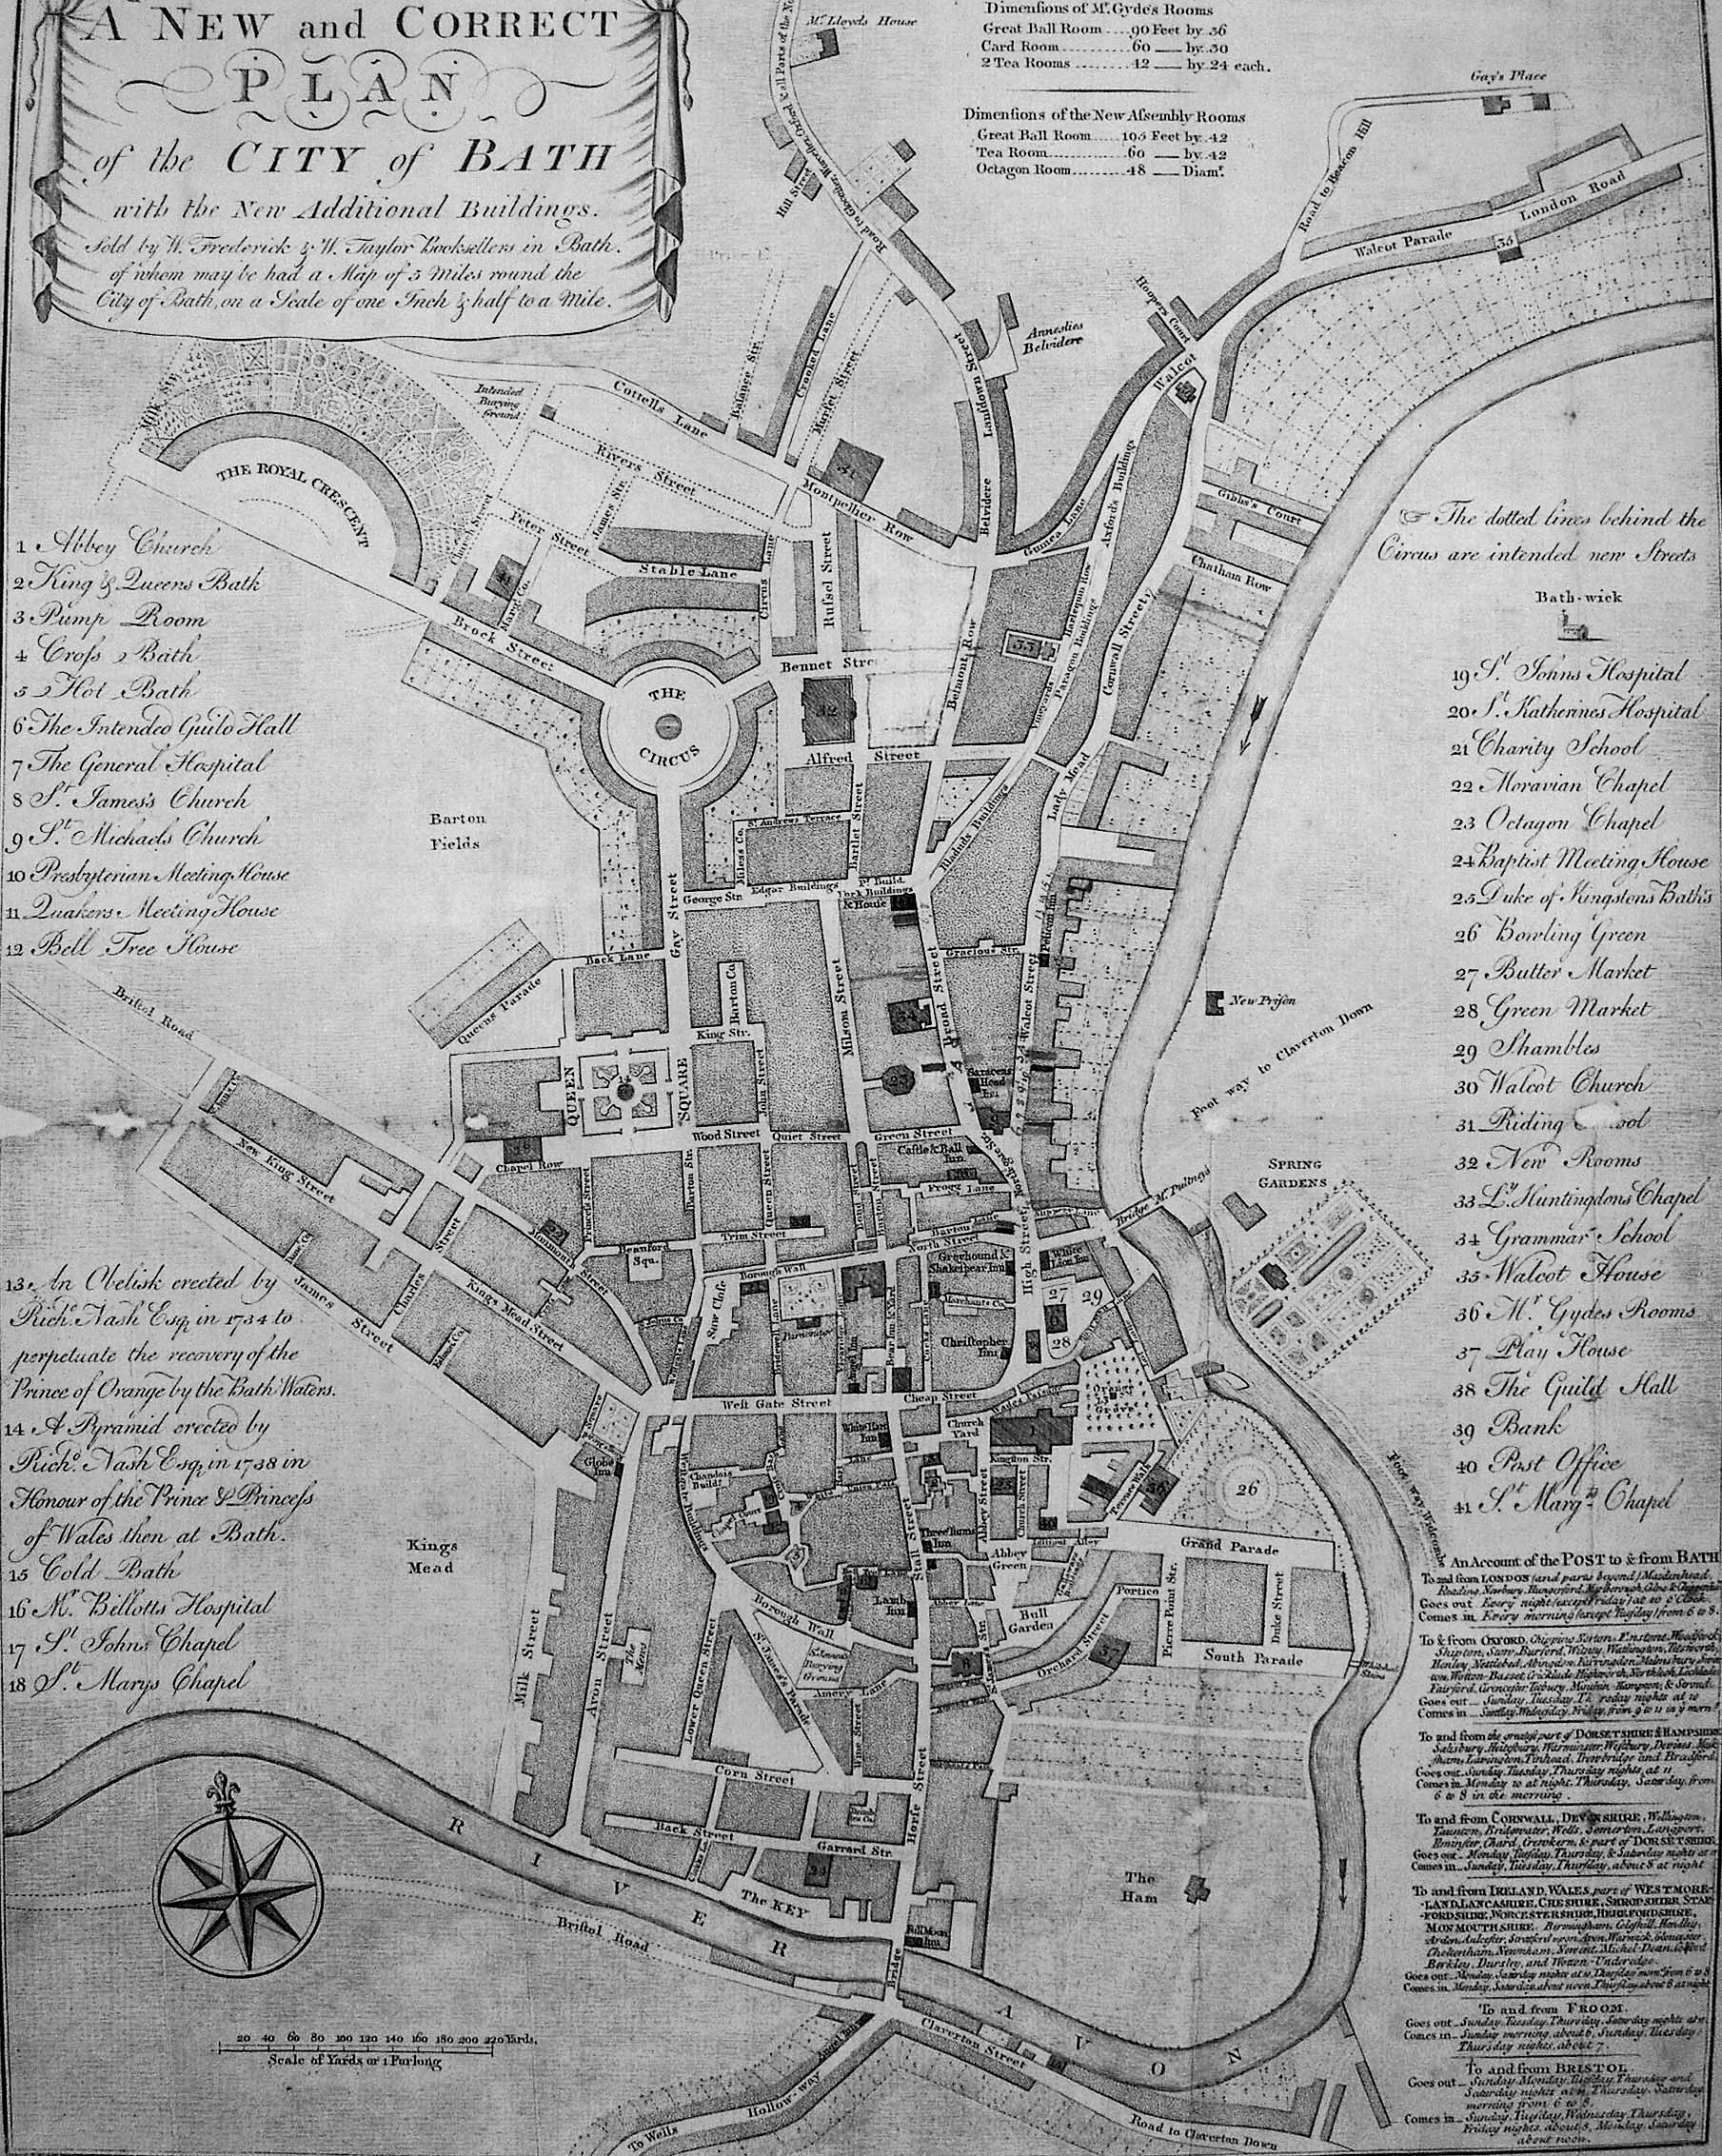 A NEW and CORRECT
PLAN
of the CITY of BATH
with the New Additional Buildings.
Sold by W. Frederick & W. Taylor Booksellers in Bath.
of whom may be had a Map of 5 Miles round the
City of Bath, on a Scale of one Inch & half to a Mile.
Mr. Lloyds House
Dimensions of Mr. Gyde's Rooms
Great Ball Room .... 90 Feet by 36
Card Room .......... 60 — by 30
2 Tea Rooms ........ 42 — by 24 each.
Dimensions of the New Assembly Rooms
Great Ball Room .... 105 Feet by 42
Tea Room............ 60 — by 42
Octagon Room........ 48 — Diamr.
Gay's Place
Road to Beacon Hill
London Road
Walcot Parade
35
Hill Street
Hoopers Court
Walcot
Annesties
Belvidere
Lansdown Street
Belvidere
Crooked Lane
Murfet Street
Balance Str.
Cottells Lane
Intended
Burying
Ground
Milk Str.
THE ROYAL CRESCENT
Rivers Street
James Str.
Peter Street
Church Street
Montpelher Row
31
Guinea Lane
Axford's Buildings
Gibbs's Court
Chatham Row
Cornwall Street
Harlequin Row
Paragon Buildings
Vineyards
33
Belmont Row
Rufsel Street
Circus Lane
Stable Lane
41
Margt. Co.
Brock Street
Bennet Stre
THE
CIRCUS
32
Alfred Street
Lady Mead
Bladuds Buildings
Bartlet Street
St. Andrews Terrace
Miless Co.
Edgar Buildings
Pr. Build.
York Buildings
& House
George Str.
Gay Street
Barton
Fields
The dotted lines behind the
Circus are intended new Streets
Bath-wick
1 Abbey Church
2 King & Queens Bath
3 Pump Room
4 Cross Bath
5 Hot Bath
6 The Intended Guild Hall
7 The General Hospital
8 St. James's Church
9 St. Michaels Church
10 Presbyterian Meeting House
11 Quakers Meeting House
12 Bell Tree House
19 St. Johns Hospital
20 St. Katherines Hospital
21 Charity School
22 Moravian Chapel
23 Octagon Chapel
24 Baptist Meeting House
25 Duke of Kingstons Baths
26 Bowling Green
27 Butter Market
28 Green Market
29 Shambles
30 Walcot Church
31 Riding ool
32 New Rooms
33 Ly. Huntingdons Chapel
34 Grammar School
35 Walcot House
36 Mr. Gydes Rooms
37 Play House
38 The Guild Hall
39 Bank
40 Post Office
41 St. Margts. Chapel
Bristol Road
Back Lane
Queens Parade
Barton Co.
King Str.
Milsom Street
Broad Street
Gracious Str.
Pelican Inn
Walcot Street
New Prison
Foot way to Claverton Down
34
23
Saracens
Head
Inn
QUEEN
SQUARE
14
John Street
Wood Street
Quiet Street
Green Street
Chapel Row
18
New King Street
Princes Street
Barton Str.
Queen Street
Bond Street
Castle & Ball
Inn
Frogg Lane
Northgate Str.
SPRING
GARDENS
Bridge Mr. Pulteneys
Charles
Street
22
Monmouth Street
Beauford
Squ.
Trim Street
Barton Lane
North Street
Greyhound &
Shakespear Inn
High Street
White
Lion Inn
Borough Wall
Saw Close
James
Street
Kings Mead Street
27
29
28
6
Merchants Co.
Christopher
Inn
Bear Inn & Yard
West Gate Street
Cheap Street
Wades Passage
Orange
Grove
13. An Obelisk erected by
Richd. Nash Esqr. in 1734 to
perpetuate the recovery of the
Prince of Orange by the Bath Waters.
14 A Pyramid erected by
Richd. Nash Esqr. in 1738 in
Honour of the Prince & Princess
of Wales then at Bath.
15 Cold Bath
16 Mr. Billotts Hospital
17 St. Johns Chapel
18 St. Marys Chapel
White Hart
Inn
Church
Yard
1
Kingston Str.
Globe
Inn
Westgate Buildings
Chandois
Build.
Chapel Court
Abbey Street
Church Street
25
Terrace Walk
36
26
Three Tuns
Inn
Stall Street
Abbey
Green
Grand Parade
Kings
Mead
Lamb
Inn
Abbey Lane
Borough Wall
Bull
Garden
Portico
Pierre Point Str.
Duke Street
Orchard Street
37
South Parade
Milk Street
Avon Street
The
Mews
Lower Queen Street
St. James's Parade
Burying
Ground
Amery Lane
Corn Street
Back Street
Garrard Str.
Horse Street
24
The KEY
Full Moon
Inn
Bridge
The
Ham
Bristol Road
RIVER AVON
20 40 60 80 100 120 140 160 180 200 220 Yards.
Scale of Yards or 1 Furlong
Angel Inn
Claverton Street
Hollow-way
To Wells
Road to Claverton Down
An Account of the POST to & from BATH
To and from LONDON (and parts beyond) Maidenhead,
Reading, Newbury, Hungerford, Marlborough, Calne & Chippenham
Goes out Every night (except Friday) at 10 o'Clock.
Comes in Every morning (except Tuesday) from 6 to 8.
To & from OXFORD,
Goes out
Comes in Sunday, Wednesday, Friday, from 9 to 11 in ye morn.
To and from the greatest part of DORSETSHIRE & HAMPSHIRE
Salisbury, Heitesbury, Warminster, Westbury, Devizes,
Goes out Sunday, Tuesday, Thursday nights, at 11
Comes in Monday 10 at night, Thursday, Saturday, from
6 to 8 in the morning.
To and from CORNWALL, DEVONSHIRE, Wellington,
Taunton, Bridgwater, Wells, Somerton, Langport,
Ilminster, Chard, Crewkern, & part of DORSETSHIRE
Goes out Monday, Tuesday, Thursday, & Saturday nights at
Comes in Sunday, Tuesday, Thursday, about 8 at night
To and from IRELAND, WALES, part of WESTMORE-
-LAND, LANCASHIRE, CHESHIRE, SHROPSHIRE, STAF-
-FORDSHIRE, WORCESTERSHIRE, HEREFORDSHIRE,
MONMOUTHSHIRE,
Berkley, Dursley, and Wotton-Underedge
To and from FROOM.
Goes out Sunday, Tuesday, Thursday, Saturday nights at
Comes in Sunday morning, about 6, Sunday, Tuesday,
Thursday nights, about 7.
To and from BRISTOL.
Goes out Sunday, Monday, Tuesday, Thursday and
Saturday nights at 11, Thursday, Saturday
morning from 6 to 8.
Comes in Sunday, Tuesday, Wednesday, Thursday,
Friday nights, about 8, Monday, Saturday
about noon.